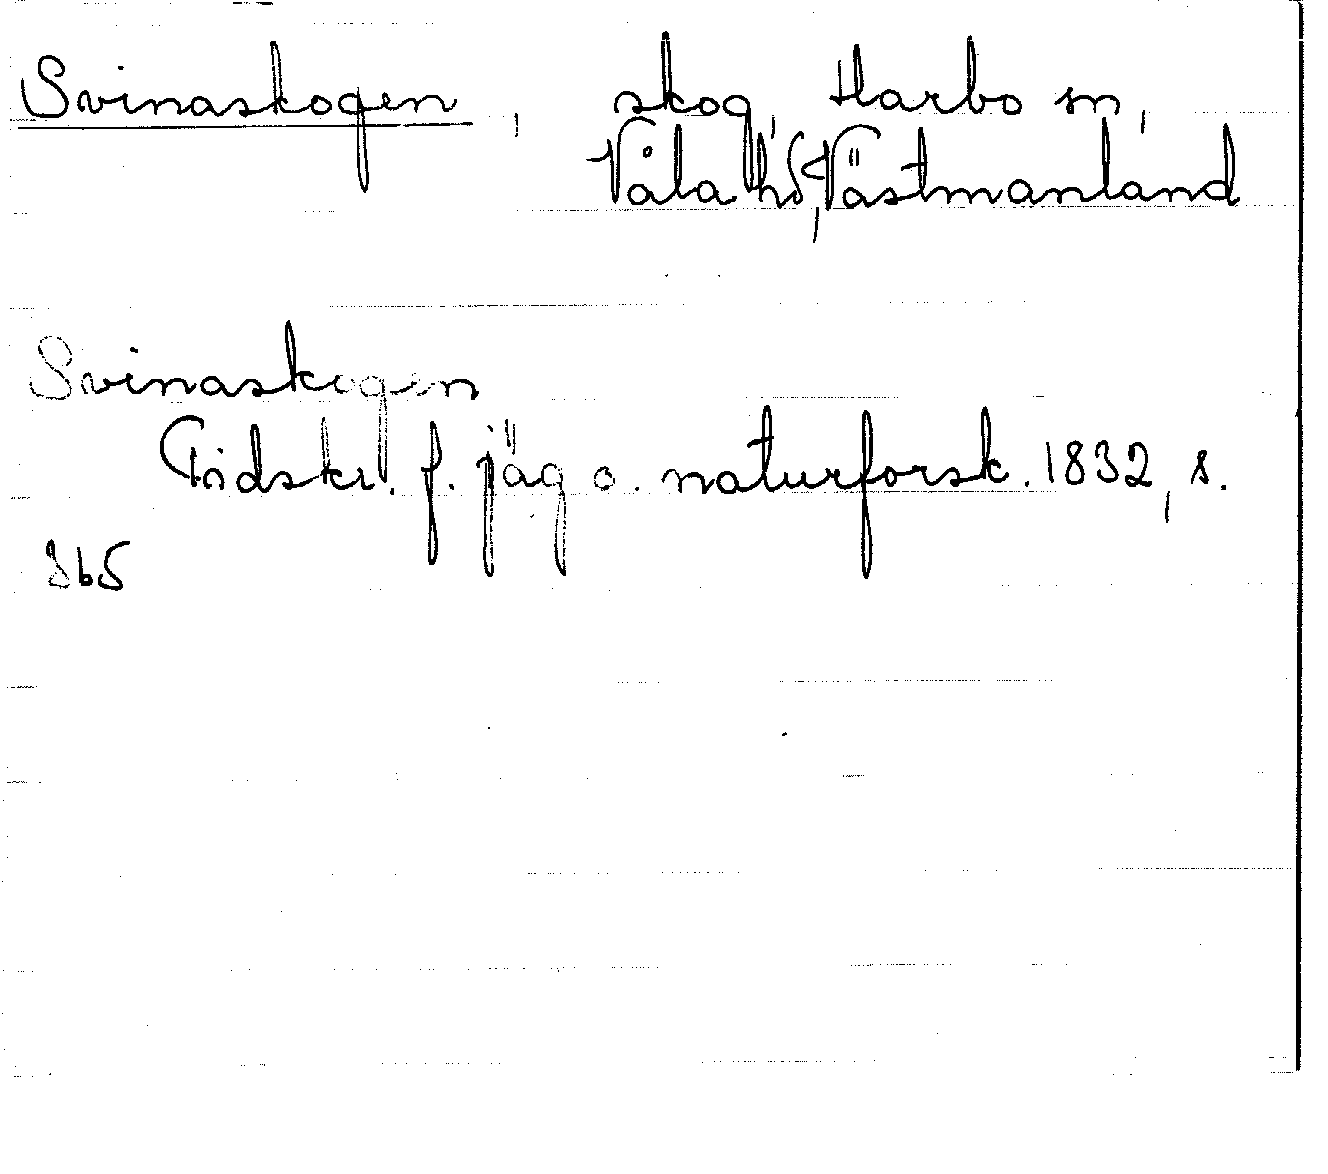 Svinaskogen, skog, Harbo sn,
Våla hd, Västmanland
Svinaskogen
Tidskr. f. jäg o. naturforsk. 1832, s.
365